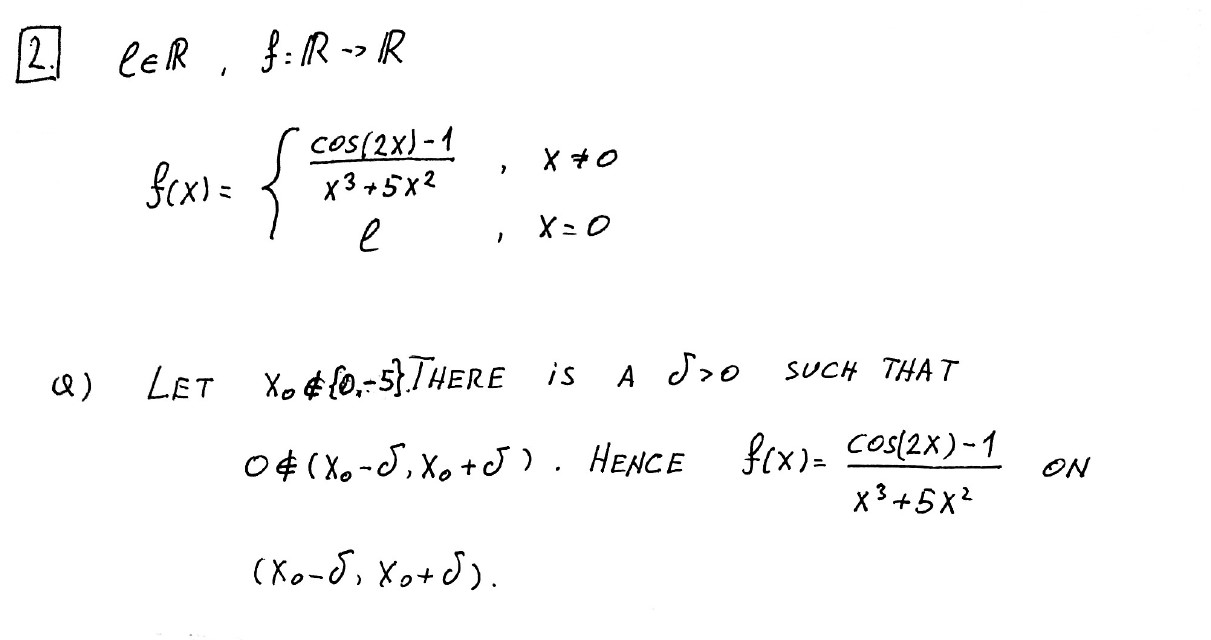 2. ℓ∈ℝ, f:ℝ->ℝ
f(x)= { (cos(2x)-1)/(x³+5x²), x≠0
ℓ, x=0
a) LET x₀∉{0,-5}. THERE IS A δ>0 SUCH THAT
0∉(x₀-δ, x₀+δ). HENCE f(x)= (cos(2x)-1)/(x³+5x²) ON
(x₀-δ, x₀+δ).